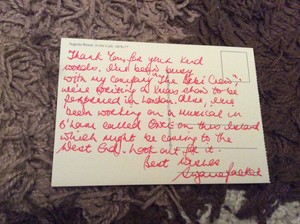 Thank You, for your kind
words. I've been busy
with my company The Bebi Crew,
we're writing a mass show to be
performed in London. Also, I've
been working on a musical in
B'ham called Once on this Island
which might be coming to the
West End. Look out for it.
Best Wishes